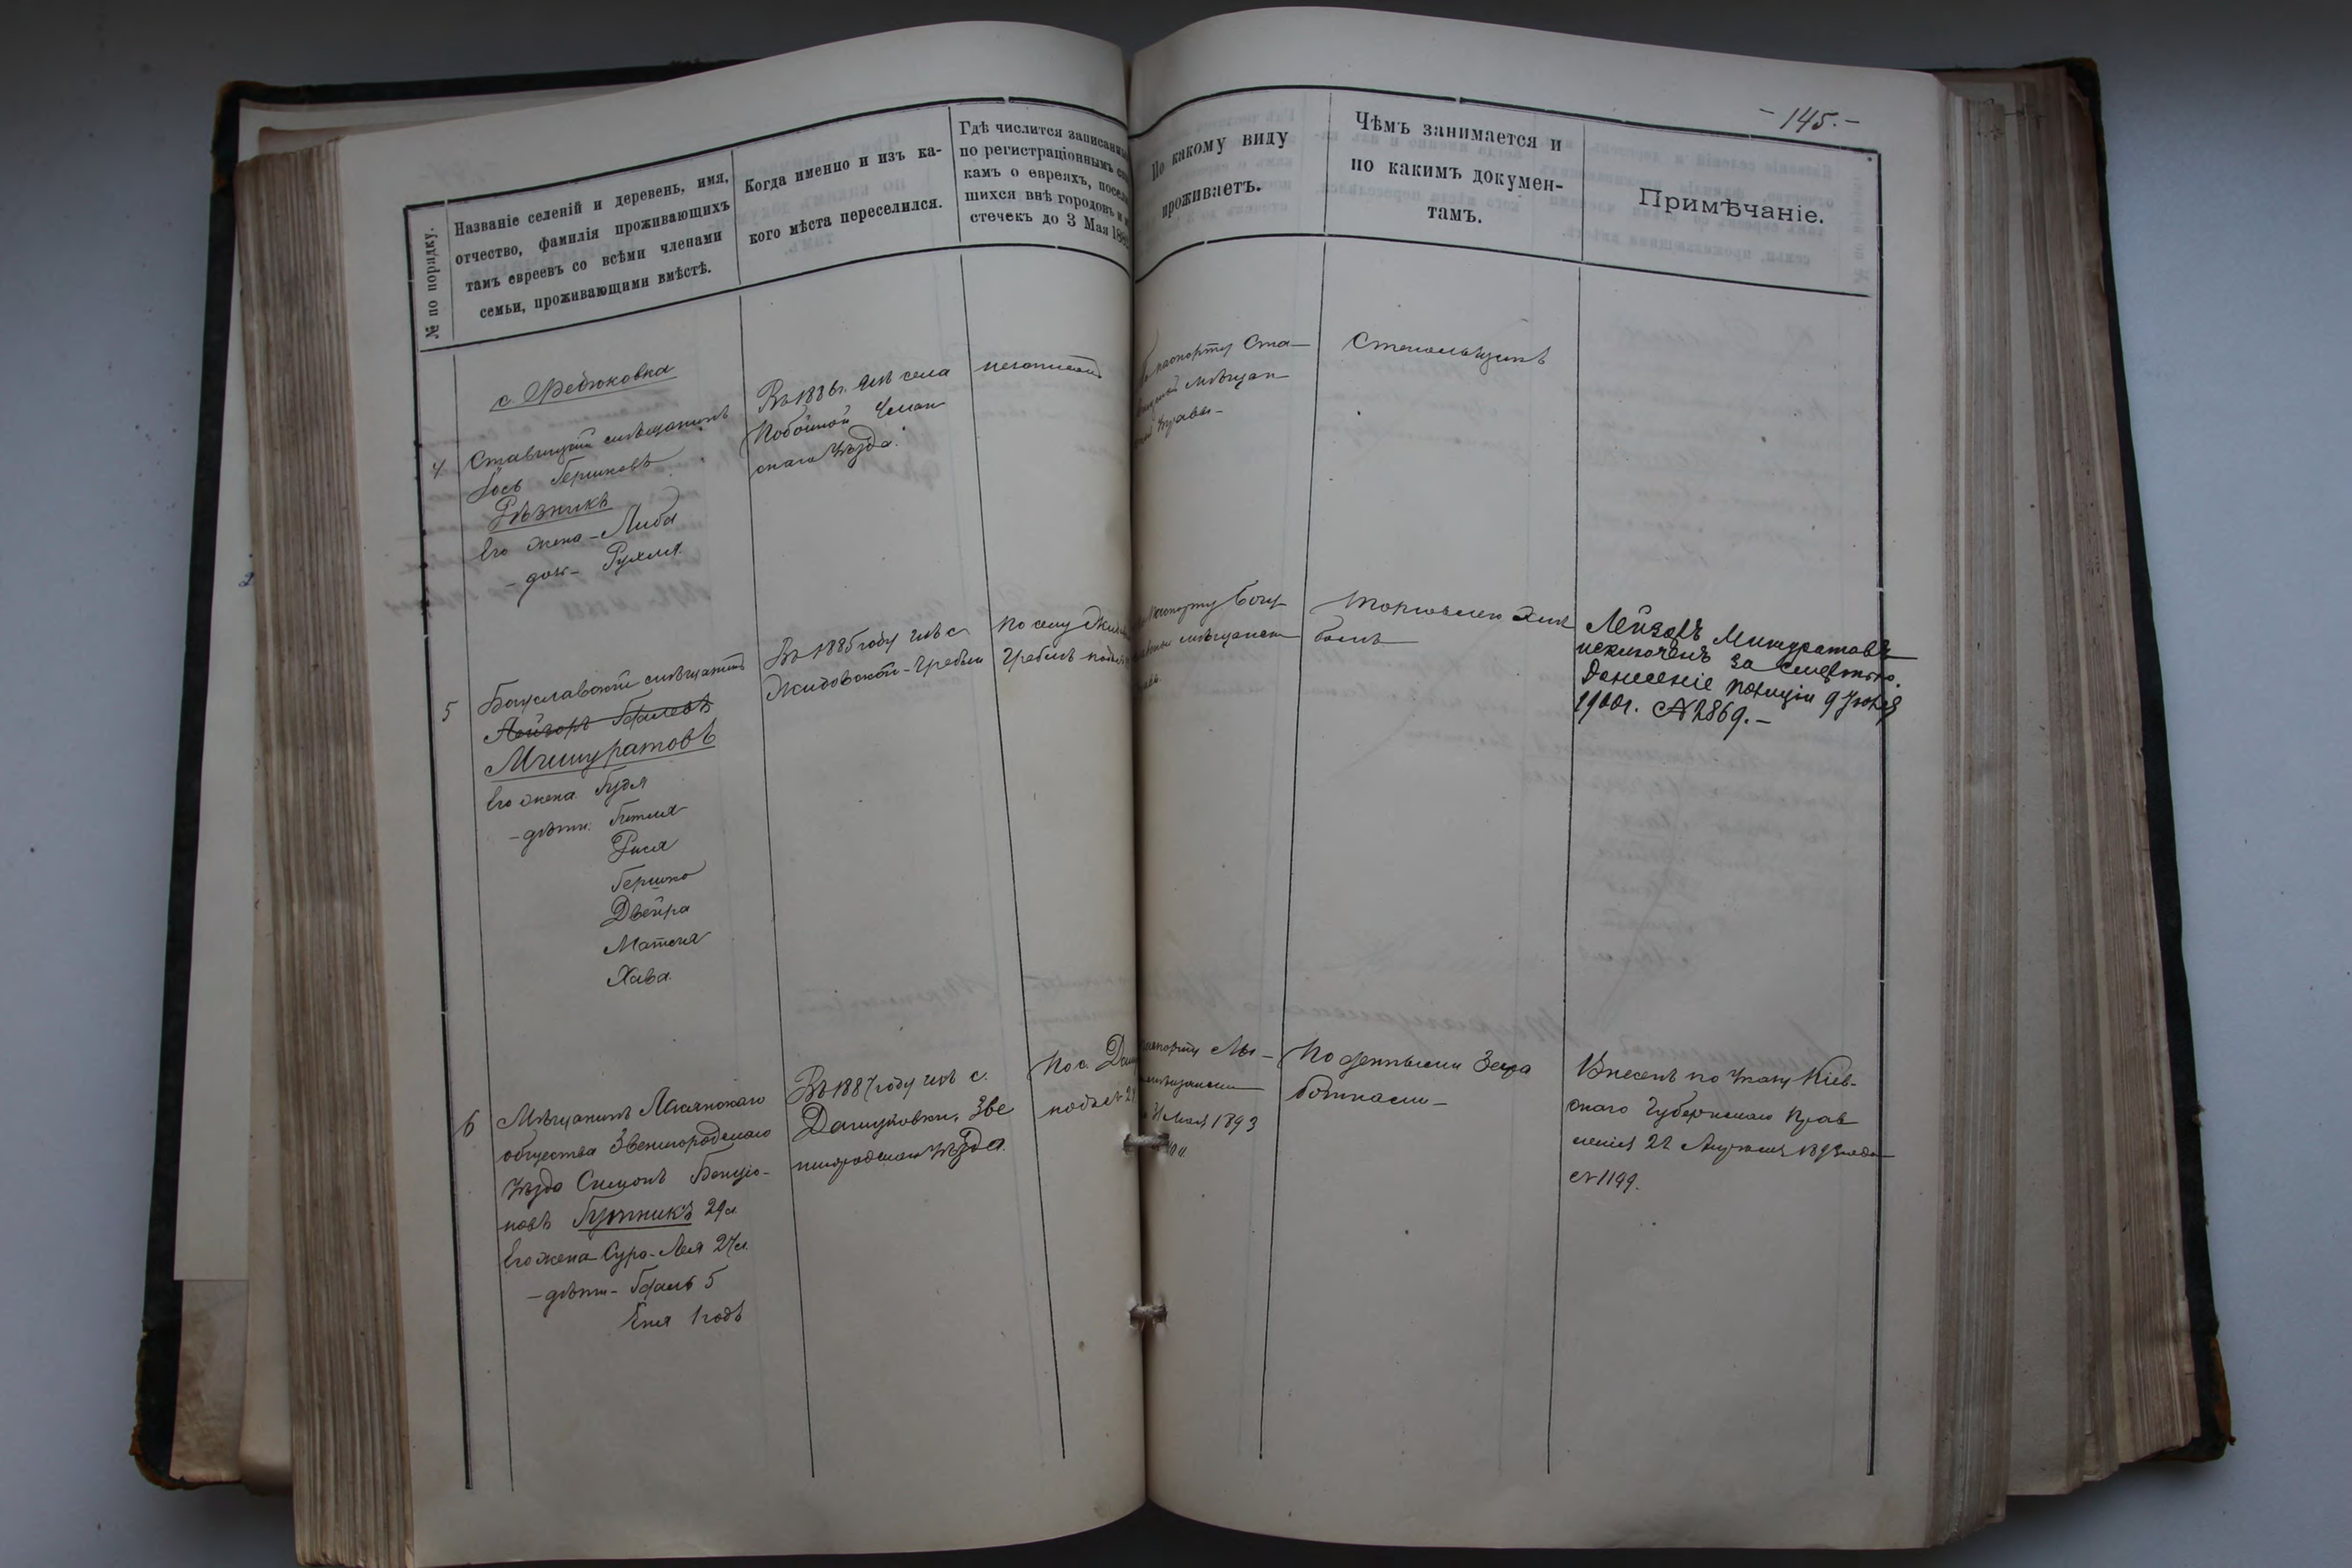 - 145. -
№ по порядку.
Названіе селеній и деревень, имя,
отчество, фамилія проживающихъ
тамъ евреевъ со всѣми членами
семьи, проживающими вмѣстѣ.
Когда именно и изъ ка-
кого мѣста переселился.
Гдѣ числится
по регистраціоннымъ
камъ о евреяхъ,
шихся внѣ городовъ и
стечекъ до 3 Мая
По какому виду
проживаетъ.
Чѣмъ занимается и
по какимъ докумен-
тамъ.
Примѣчаніе.
с. Федюковка
4
Ставищкій мѣщанинъ
Іось Гершковъ
Рѣзникъ
Его жена - Либа
- доч - Рухля
Въ 1886г. изъ села
Побойной
скаго Уѣзда.
паспорту Ста-
мѣщан
Управы -
Стекольщикъ
5
Богуславскій мѣщанинъ
Лейзоръ
Мишуратовъ
Его жена
- дѣти:
Рися
Гершко
Двейра
Хава.
Въ 1885 году изъ с
Жидовской-Гребли
По селу
Гребль
Паспорту Богу
мѣщанск
торговлею хлѣ
бомъ
Лейзоръ Мишуратовъ
исключенъ за смертью.
Донесеніе полиціи 9
1900г. № 2869. -
6
Мѣщанинъ Лысянскаго
общества Звенигородскаго
Уѣзда Симонъ Бенціо-
новъ 29 л.
Его жена Сура-Лея 27 л.
- дѣти - 5
Еня 1 годъ
Въ 1887 году изъ с.
Дашуковки, Зве
нигородскаго Уѣзда.
По с.
под № 21
паспорту Лы -
мѣщанск
Мая 1893
По деннымъ Зара
боткамъ -
Внесенъ по Указу Кіев-
скаго Губернскаго Прав
ленія 22 1893 года
№ 1149.